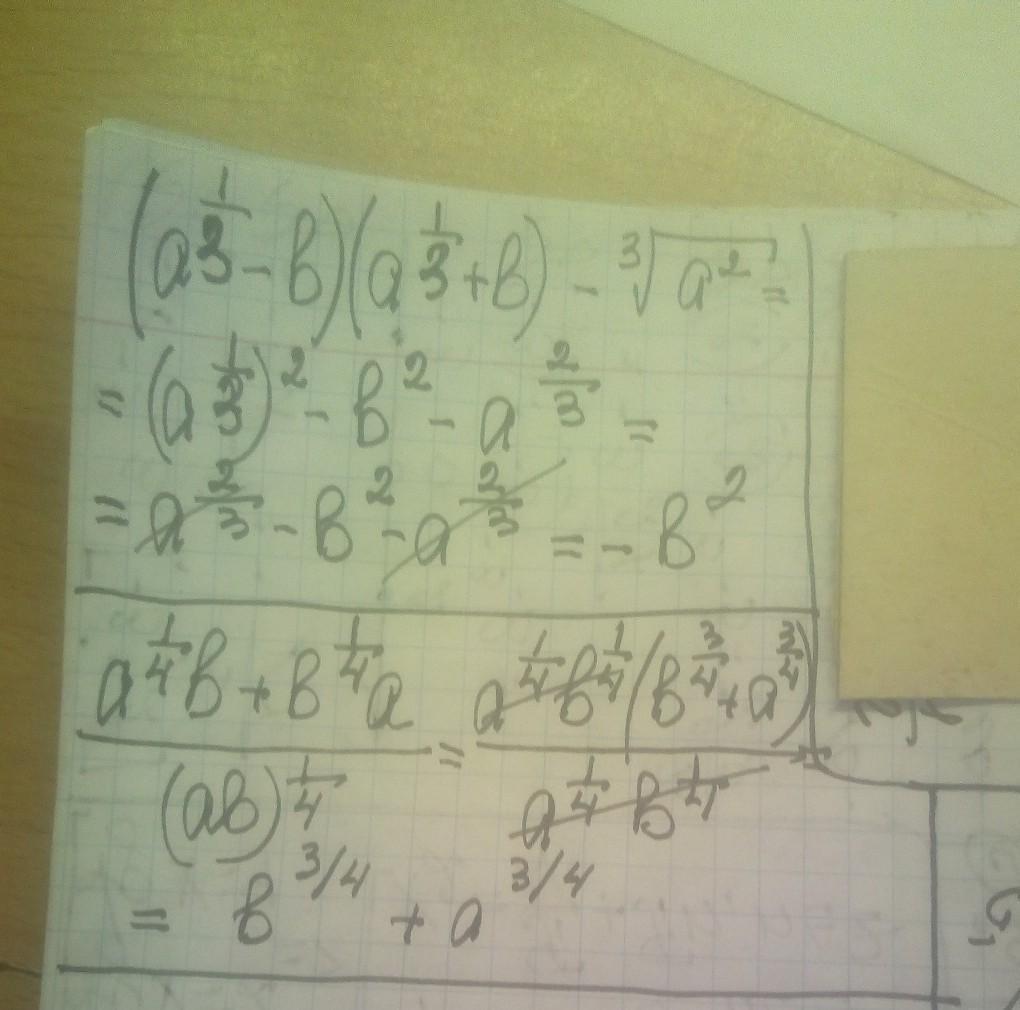 (a^{1/3} - в)(a^{1/3} + в) - ∛a² =
= (a^{1/3})² - в² - a^{2/3} =
= a^{2/3} - в² - a^{2/3} = - в²
(a^{1/4}в + в^{1/4}a)/(aв)^{1/4} = (a^{1/4}в^{1/4}(в^{3/4} + a^{3/4}))/(a^{1/4}в^{1/4})
= в^{3/4} + a^{3/4}